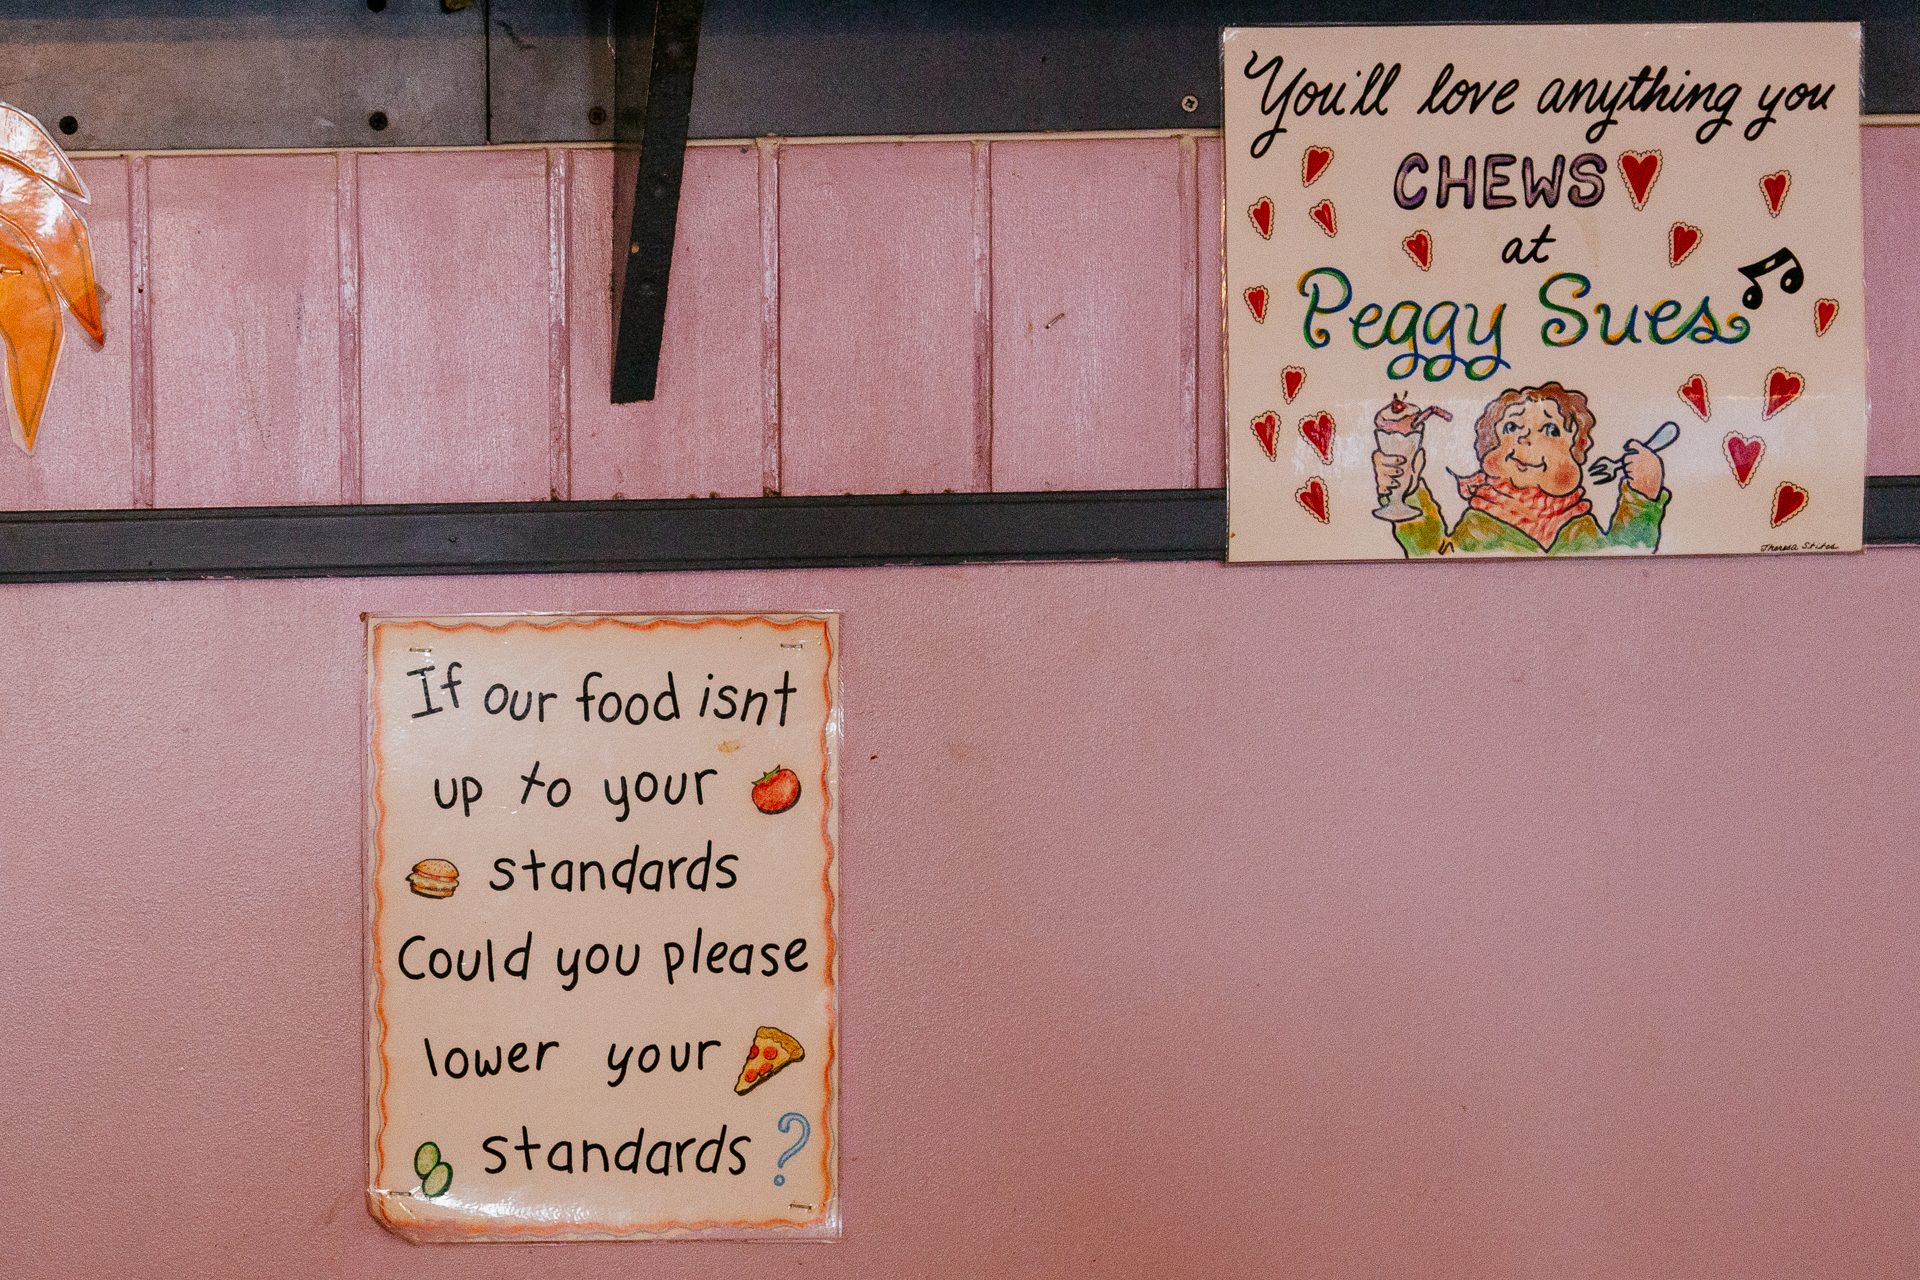 You'll love anything you
CHEWS
at
Peggy Sues
Theresa Stites
If our food isnt
up to your
standards
Could you please
lower your
standards?